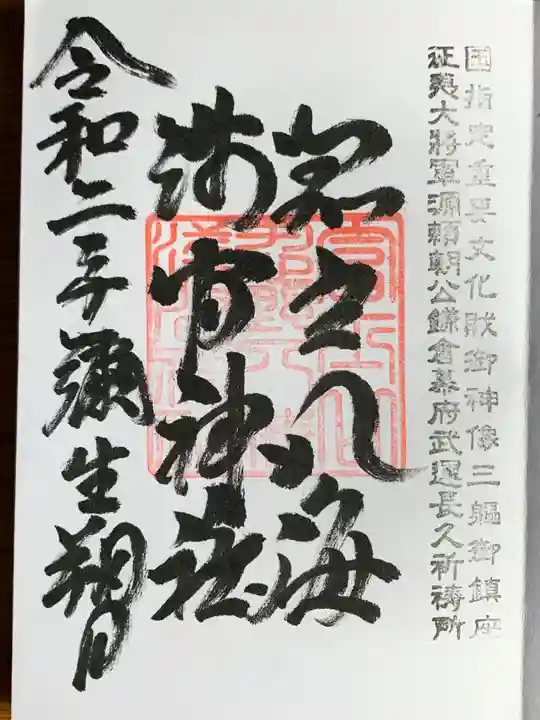 国指定重要文化財御神像三軀御鎮座
征夷大將軍源頼朝公鎌倉幕府武運長久祈祷所
忍之八海
浅間神社
令和二年彌生朔日